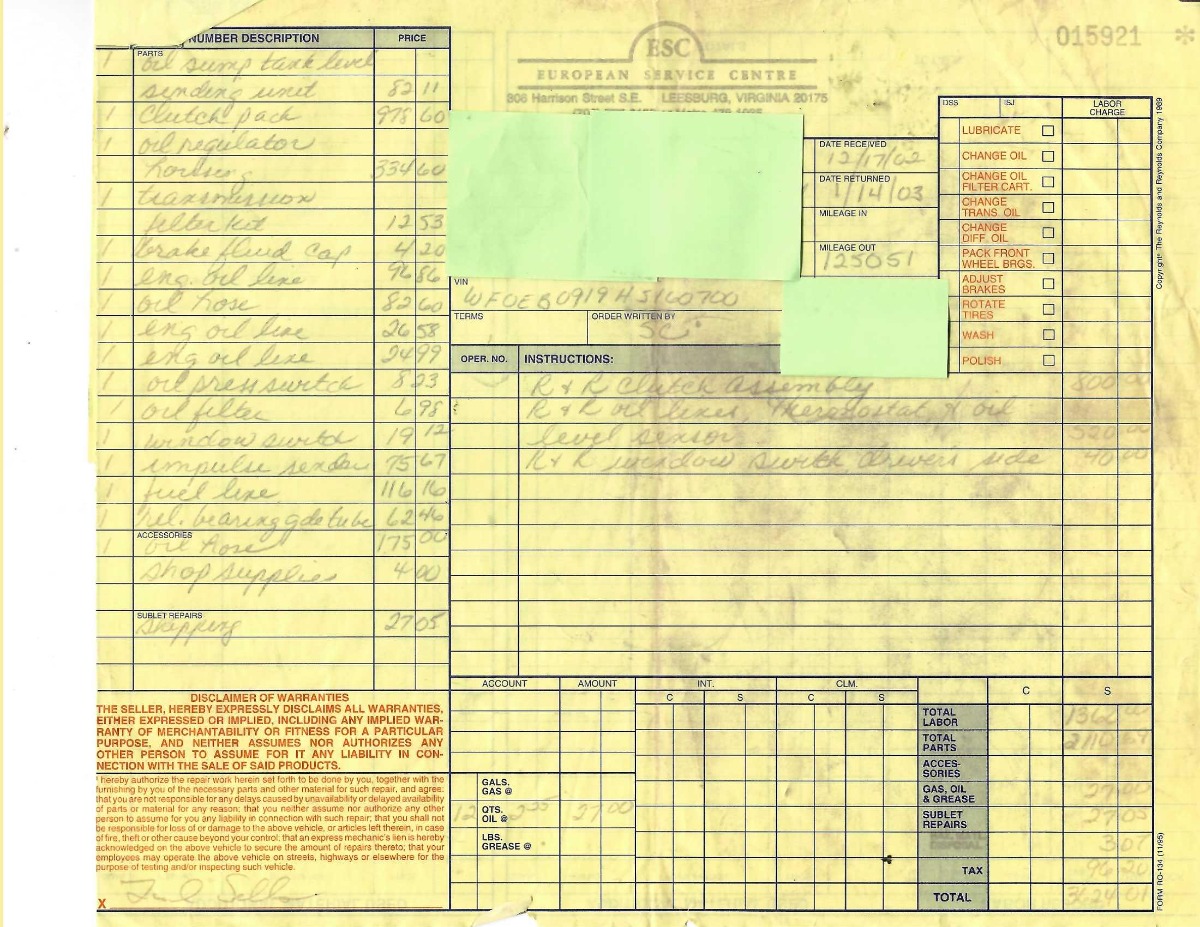 015921 *
ESC
EUROPEAN SERVICE CENTRE
306 Harrison Street S.E. LEESBURG, VIRGINIA 20175
NUMBER DESCRIPTION PRICE
PARTS
1 oil sump tank level
sending unit 82 11
1 Clutch pack 978 60
1 oil regulator
housing 334 60
1 transmission
filter kit 12 53
1 brake fluid cap 4 20
1 eng. oil line 96 86
1 oil hose 82 60
1 eng oil line 26 58
1 eng oil line 24 99
1 oil press switch 8 23
1 oil filter 6 98
1 window switch 19 12
1 impulse sender 75 67
1 fuel line 116 16
1 rel. bearing gde tube 62 46
ACCESSORIES
1 oil hose 175 00
shop supplies 4 00
SUBLET REPAIRS
shipping 27 05
DISCLAIMER OF WARRANTIES
THE SELLER, HEREBY EXPRESSLY DISCLAIMS ALL WARRANTIES,
EITHER EXPRESSED OR IMPLIED, INCLUDING ANY IMPLIED WAR-
RANTY OF MERCHANTABILITY OR FITNESS FOR A PARTICULAR
PURPOSE, AND NEITHER ASSUMES NOR AUTHORIZES ANY
OTHER PERSON TO ASSUME FOR IT ANY LIABILITY IN CON-
NECTION WITH THE SALE OF SAID PRODUCTS.
I hereby authorize the repair work herein set forth to be done by you, together with the
furnishing by you of the necessary parts and other material for such repair, and agree:
that you are not responsible for any delays caused by unavailability or delayed availability
of parts or material for any reason; that you neither assume nor authorize any other
person to assume for you any liability in connection with such repair; that you shall not
be responsible for loss of or damage to the above vehicle, or articles left therein, in case
of fire, theft or other cause beyond your control; that an express mechanic's lien is hereby
acknowledged on the above vehicle to secure the amount of repairs thereto; that your
employees may operate the above vehicle on streets, highways or elsewhere for the
purpose of testing and/or inspecting such vehicle.
X
DATE RECEIVED
12/17/02
DATE RETURNED
1/14/03
MILEAGE IN
MILEAGE OUT
125051
VIN
WF0EB0919HS160700
TERMS ORDER WRITTEN BY
SC
OPER. NO. INSTRUCTIONS:
R & R Clutch Assembly 800 00
R & R oil lines, Thermostat & oil
level sensor 520 00
R & R window switch drivers side 40 00
DSS ISJ LABOR
CHARGE
LUBRICATE
CHANGE OIL
CHANGE OIL
FILTER CART.
CHANGE
TRANS. OIL
CHANGE
DIFF. OIL
PACK FRONT
WHEEL BRGS.
ADJUST
BRAKES
ROTATE
TIRES
WASH
POLISH
ACCOUNT AMOUNT INT. CLM.
C S C S C S
GALS.
GAS @
12 QTS. 2.25 27 00
OIL @
LBS.
GREASE @
TOTAL
LABOR 1360 00
TOTAL
PARTS 2110 69
ACCES-
SORIES
GAS, OIL
& GREASE 27 00
SUBLET
REPAIRS 27 05
3 07
TAX 96 20
TOTAL 3624 01
Copyright The Reynolds and Reynolds Company 1989
FORM RO-134 (11/95)